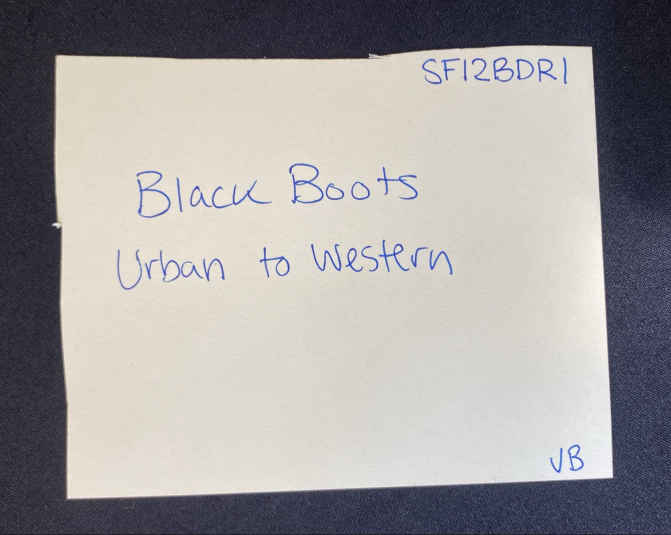 SF12BDR1
Black Boots
Urban to Western
VB